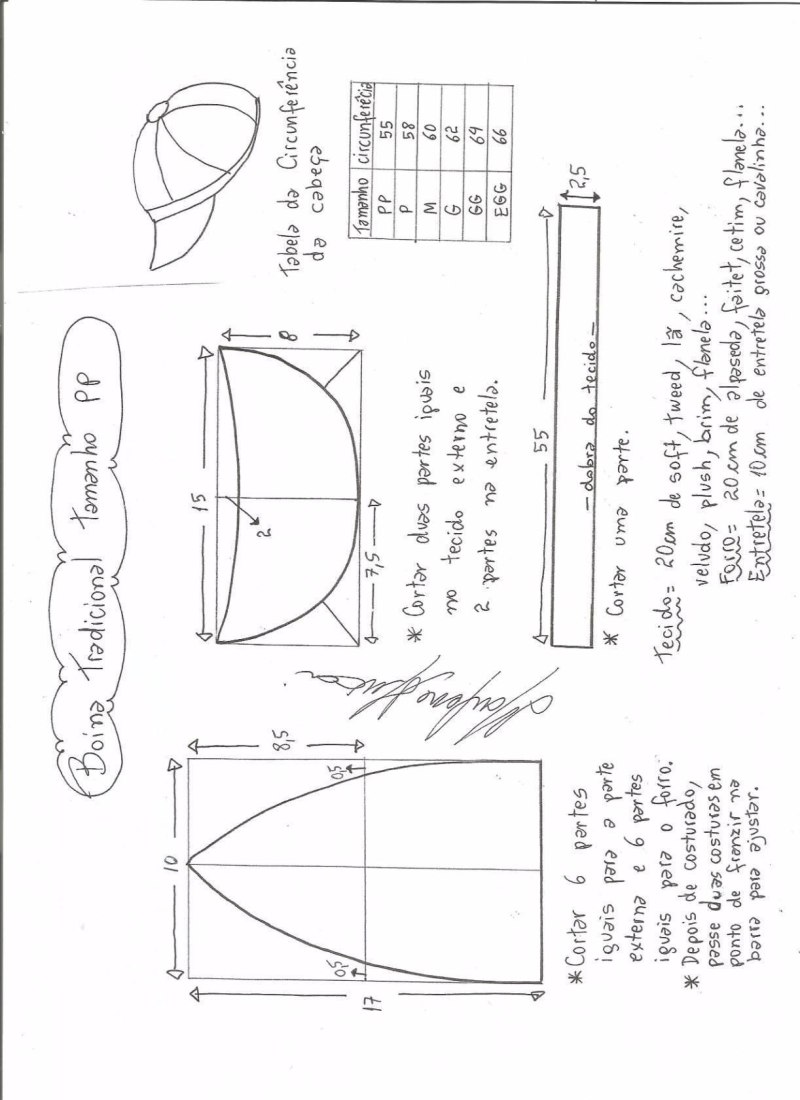 Boina Tradicional Tamanho PP
10
8,5
17
0,5
0,5
* Cortar 6 partes
iguais para a parte
externa e 6 partes
iguais para o forro.
* Depois de costurado,
passe duas costuras em
ponto de franzir na
barra para ajustar.
15
8
2
7,5
* Cortar duas partes iguais
no tecido externo e
2 partes na entretela.
Tabela da Circunferência
da cabeça
Tamanho circunferêcia
PP 55
P 58
M 60
G 62
GG 64
EGG 66
55
2,5
- dobra do tecido -
* Cortar uma parte.
Tecido= 20cm de soft, tweed, lã, cachemire,
veludo, plush, brim, flanela...
Forro= 20cm de alpaseda, faitet, cetim, flanela...
Entretela= 10cm de entretela grossa ou cavalinha...